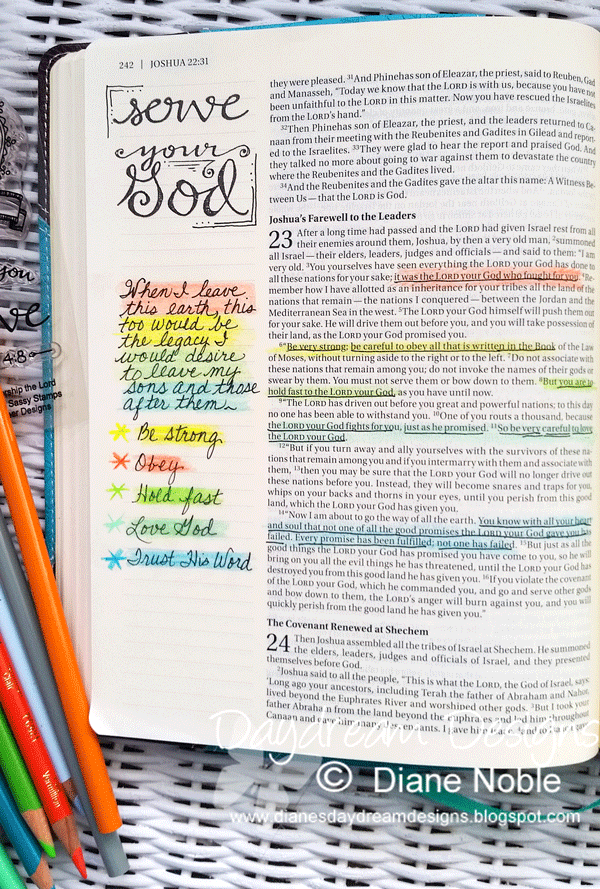 242 | JOSHUA 22:31
serve
your
God
When I leave
this earth, this
too would be
the legacy I
would desire
to leave my
sons and those
after them.
Be strong
Obey
Hold fast
Love God
Trust His Word
they were pleased. 31And Phinehas son of Eleazar, the priest, said to Reuben, Gad
and Manasseh, "Today we know that the LORD is with us, because you have not
been unfaithful to the LORD in this matter. Now you have rescued the Israelites
from the LORD's hand."
32Then Phinehas son of Eleazar, the priest, and the leaders returned to Ca-
naan from their meeting with the Reubenites and Gadites in Gilead and report-
ed to the Israelites. 33They were glad to hear the report and praised God. And
they talked no more about going to war against them to devastate the country
where the Reubenites and the Gadites lived.
34And the Reubenites and the Gadites gave the altar this name: A Witness Be-
tween Us—that the LORD is God.
Joshua's Farewell to the Leaders
23 After a long time had passed and the LORD had given Israel rest from all
their enemies around them, Joshua, by then a very old man, 2summoned
all Israel—their elders, leaders, judges and officials—and said to them: "I am
very old. 3You yourselves have seen everything the LORD your God has done to
all these nations for your sake; it was the LORD your God who fought for you. 4Re-
member how I have allotted as an inheritance for your tribes all the land of the
nations that remain—the nations I conquered—between the Jordan and the
Mediterranean Sea in the west. 5The LORD your God himself will push them out
for your sake. He will drive them out before you, and you will take possession of
their land, as the LORD your God promised you.
6"Be very strong; be careful to obey all that is written in the Book of the Law
of Moses, without turning aside to the right or to the left. 7Do not associate with
these nations that remain among you; do not invoke the names of their gods or
swear by them. You must not serve them or bow down to them. 8But you are to
hold fast to the LORD your God, as you have until now.
9"The LORD has driven out before you great and powerful nations; to this day
no one has been able to withstand you. 10One of you routs a thousand, because
the LORD your God fights for you, just as he promised. 11So be very careful to love
the LORD your God.
12"But if you turn away and ally yourselves with the survivors of these na-
tions that remain among you and if you intermarry with them and associate with
them, 13then you may be sure that the LORD your God will no longer drive out
these nations before you. Instead, they will become snares and traps for you,
whips on your backs and thorns in your eyes, until you perish from this good
land, which the LORD your God has given you.
14"Now I am about to go the way of all the earth. You know with all your heart
and soul that not one of all the good promises the LORD your God gave you has
failed. Every promise has been fulfilled; not one has failed. 15But just as all the
good things the LORD your God has promised you have come to you, so he will
bring on you all the evil things he has threatened, until the LORD your God has
destroyed you from this good land he has given you. 16If you violate the covenant
of the LORD your God, which he commanded you, and go and serve other gods
and bow down to them, the LORD's anger will burn against you, and you will
quickly perish from the good land he has given you."
The Covenant Renewed at Shechem
24 Then Joshua assembled all the tribes of Israel at Shechem. He summoned
the elders, leaders, judges and officials of Israel, and they presented
themselves before God.
2Joshua said to all the people, "This is what the LORD, the God of Israel, says:
'Long ago your ancestors, including Terah the father of Abraham and Nahor,
lived beyond the Euphrates River and worshiped other gods. 3But I took your
father Abraham from the land beyond the Euphrates and led him throughout
Canaan and gave him many descendants. I gave him
you
ve
4:8
ship the Lord
Sassy Stamps
er Designs
Vermilion
Daydream Designs
© Diane Noble
www.dianesdaydreamdesigns.blogspot.com